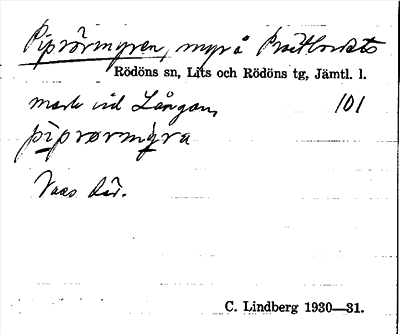 Piprörmyren, myr å Prästbordets
Rödöns sn, Lits och Rödöns tg, Jämtl. l.
mark vid Långan, 101
pìprørmy̆ra
Vass där.
C. Lindberg 1930—31.